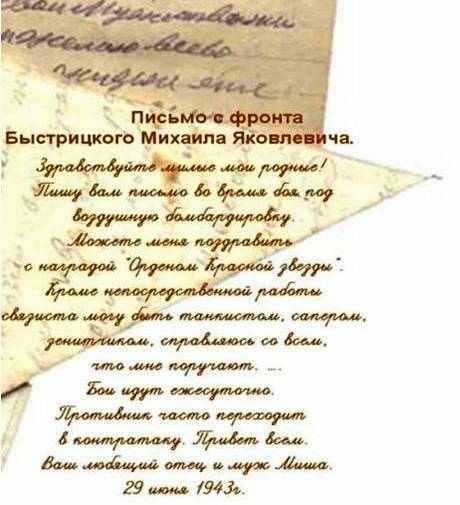 Письмо с фронта
Быстрицкого Михаила Яковлевича.
Здравствуйте милые мои родные!
Пишу Вам письмо во время боя под
воздушную бомбардировку.
Можете меня поздравить
с наградой "Орденом Красной звезды".
Кроме непосредственной работы
связиста могу быть танкистом, сапером,
зенитчиком, справляюсь со всем,
что мне поручают. ....
Бои идут ежесуточно.
Противник часто переходит
в контратаку. Привет всем.
Ваш любящий отец и муж Миша.
29 июня 1943г.